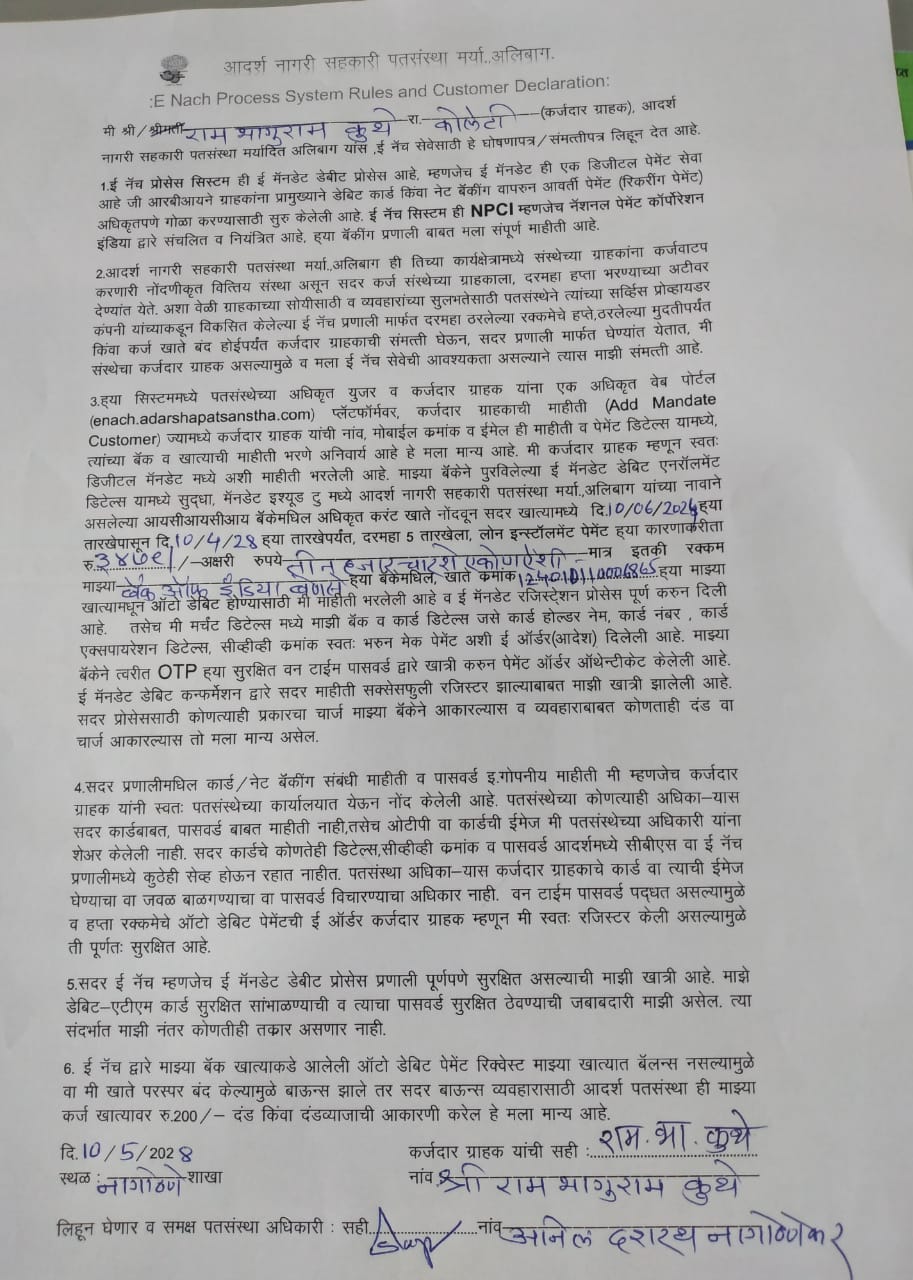 आदर्श नागरी सहकारी पतसंस्था मर्या.,अलिबाग.
:E Nach Process System Rules and Customer Declaration:
मी श्री/श्रीमती राम भागुराम कुथे रा. कोलेटी (कर्जदार ग्राहक), आदर्श
नागरी सहकारी पतसंस्था मर्यादित अलिबाग यांस ,ई नॅच सेवेसाठी हे घोषणापत्र/संमत्तीपत्र लिहून देत आहे.
1.ई नॅच प्रोसेस सिस्टम ही ई मॅनडेट डेबीट प्रोसेस आहे. म्हणजेच ई मॅनडेट ही एक डिजीटल पेमेंट सेवा
आहे जी आरबीआयने ग्राहकांना प्रामुख्याने डेबिट कार्ड किंवा नेट बॅकींग वापरुन आवर्ती पेमेंट (रिकरींग पेमेंट)
अधिकृतपणे गोळा करण्यासाठी सुरु केलेली आहे. ई नॅच सिस्टम ही NPCI म्हणजेच नॅशनल पेमेंट कॉर्पोरेशन
इंडिया द्वारे संचलित व नियंत्रित आहे, ह्या बॅकींग प्रणाली बाबत मला संपूर्ण माहीती आहे.
2.आदर्श नागरी सहकारी पतसंस्था मर्या.,अलिबाग ही तिच्या कार्यक्षेत्रामध्ये संस्थेच्या ग्राहकांना कर्जवाटप
करणारी नोंदणीकृत वित्तिय संस्था असून सदर कर्ज संस्थेच्या ग्राहकाला, दरमहा हप्ता भरण्याच्या अटीवर
देण्यांत येते. अशा वेळी ग्राहकाच्या सोयीसाठी व व्यवहारांच्या सुलभतेसाठी पतसंस्थेने त्यांच्या सर्व्हिस प्रोव्हायडर
कंपनी यांच्याकडून विकसित केलेल्या ई नॅच प्रणाली मार्फत दरमहा ठरलेल्या रक्कमेचे हप्ते,ठरलेल्या मुदतीपर्यंत
किंवा कर्ज खाते बंद होईपर्यंत कर्जदार ग्राहकाची संमत्ती घेऊन, सदर प्रणाली मार्फत घेण्यांत येतात, मी
संस्थेचा कर्जदार ग्राहक असल्यामुळे व मला ई नॅच सेवेची आवश्यकता असल्याने त्यास माझी संमत्ती आहे.
3.ह्या सिस्टममध्ये पतसंस्थेच्या अधिकृत युजर व कर्जदार ग्राहक यांना एक अधिकृत वेब पोर्टल
(enach.adarshapatsanstha.com) प्लॅटफॉर्मवर, कर्जदार ग्राहकाची माहीती (Add Mandate
Customer) ज्यामध्ये कर्जदार ग्राहक यांची नांव, मोबाईल क्रमांक व ईमेल ही माहीती व पेमेंट डिटेल्स यामध्ये,
त्यांच्या बॅक व खात्याची माहीती भरणे अनिवार्य आहे हे मला मान्य आहे. मी कर्जदार ग्राहक म्हणून स्वतः
डिजीटल मॅनडेट मध्ये अशी माहीती भरलेली आहे. माझ्या बॅकेने पुरविलेल्या ई मॅनडेट डेबिट एनरॉलमेंट
डिटेल्स यामध्ये सुद्धा, मॅनडेट इश्यूड टु मध्ये आदर्श नागरी सहकारी पतसंस्था मर्या.,अलिबाग यांच्या नावाने
असलेल्या आयसीआयसीआय बॅकेमधिल अधिकृत करंट खाते नोंदवून सदर खात्यामध्ये दि.10/06/2024ह्या
तारखेपासून दि.10/4/28 ह्या तारखेपर्यंत, दरमहा 5 तारखेला, लोन इन्स्टॉलमेंट पेमेंट ह्या कारणाकरीता
रु.३४७९/-अक्षरी रुपये तीन हजार चारशे एकोणऐंशी मात्र इतकी रक्कम
माझ्या बँक ऑफ इंडिया वेणसे ह्या बॅकेमधिल, खाते क्रमांक124010110006865ह्या माझ्या
खात्यामधून ऑटो डेबिट होण्यासाठी मी माहीती भरलेली आहे व ई मॅनडेट रजिस्ट्रेशन प्रोसेस पूर्ण करुन दिली
आहे. तसेच मी मर्चंट डिटेल्स मध्ये माझी बॅक व कार्ड डिटेल्स जसे कार्ड होल्डर नेम, कार्ड नंबर , कार्ड
एक्सपायरेशन डिटेल्स, सीव्हीव्ही क्रमांक स्वतः भरुन मेक पेमेंट अशी ई ऑर्डर(आदेश) दिलेली आहे. माझ्या
बॅकेने त्वरीत OTP ह्या सुरक्षित वन टाईम पासवर्ड द्वारे खात्री करुन पेमेंट ऑर्डर ऑथेन्टीकेट केलेली आहे.
ई मॅनडेट डेबिट कन्फर्मेशन द्वारे सदर माहीती सक्सेसफुली रजिस्टर झाल्याबाबत माझी खात्री झालेली आहे.
सदर प्रोसेससाठी कोणत्याही प्रकारचा चार्ज माझ्या बॅकेने आकारल्यास व व्यवहाराबाबत कोणताही दंड वा
चार्ज आकारल्यास तो मला मान्य असेल.
4.सदर प्रणालीमधिल कार्ड/नेट बॅकींग संबंधी माहीती व पासवर्ड इ.गोपनीय माहीती मी म्हणजेच कर्जदार
ग्राहक यांनी स्वतः पतसंस्थेच्या कार्यालयात येऊन नोंद केलेली आहे. पतसंस्थेच्या कोणत्याही अधिका–यास
सदर कार्डबाबत, पासवर्ड बाबत माहीती नाही,तसेच ओटीपी वा कार्डची ईमेज मी पतसंस्थेच्या अधिकारी यांना
शेअर केलेली नाही. सदर कार्डचे कोणतेही डिटेल्स,सीव्हीव्ही क्रमांक व पासवर्ड आदर्शमध्ये सीबीएस वा ई नॅच
प्रणालीमध्ये कुठेही सेव्ह होऊन रहात नाहीत. पतसंस्था अधिका–यास कर्जदार ग्राहकाचे कार्ड वा त्याची ईमेज
घेण्याचा वा जवळ बाळगण्याचा वा पासवर्ड विचारण्याचा अधिकार नाही. वन टाईम पासवर्ड पद्धत असल्यामुळे
व हप्ता रक्कमेचे ऑटो डेबिट पेमेंटची ई ऑर्डर कर्जदार ग्राहक म्हणून मी स्वतः रजिस्टर केली असल्यामुळे
ती पूर्णतः सुरक्षित आहे.
5.सदर ई नॅच म्हणजेच ई मॅनडेट डेबीट प्रोसेस प्रणाली पूर्णपणे सुरक्षित असल्याची माझी खात्री आहे. माझे
डेबिट–एटीएम कार्ड सुरक्षित सांभाळण्याची व त्याचा पासवर्ड सुरक्षित ठेवण्याची जबाबदारी माझी असेल. त्या
संदर्भात माझी नंतर कोणतीही तक्रार असणार नाही.
6. ई नॅच द्वारे माझ्या बॅक खात्याकडे आलेली ऑटो डेबिट पेमेंट रिक्वेस्ट माझ्या खात्यात बॅलन्स नसल्यामुळे
वा मी खाते परस्पर बंद केल्यामुळे बाऊन्स झाले तर सदर बाऊन्स व्यवहारासाठी आदर्श पतसंस्था ही माझ्या
कर्ज खात्यावर रु.200/– दंड किंवा दंडव्याजाची आकारणी करेल हे मला मान्य आहे.
दि.10/5/2028 कर्जदार ग्राहक यांची सही : राम. भा. कुथे
स्थळ : नागोठणे शाखा नांव श्री राम भागुराम कुथे
लिहून घेणार व समक्ष पतसंस्था अधिकारी : सही नांव अनिल दशरथ नागोठणेकर